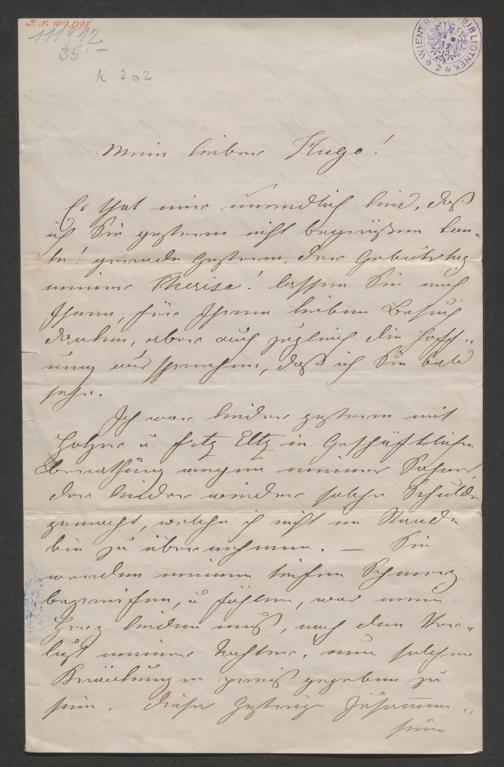 I.N. 109.098
111912
35.-
K 202
WIENER BIBLIOTHEK
Mein lieber Hugo!
Es that mir unendlich leid, daß
ich Sie gestern nicht begrüßen kon-
te! gerade gestern, der Geburtstag
meiner Therise! lassen Sie mich
Ihnen, für Ihren lieben Besuch
danken, aber auch zugleich die Hoff-
nung aussprechen, daß ich Sie bald
sehe.
Ich war leider gestern mit
u Fritz Eltz in Geschäftlicher
Berathung wegen meines Sohnes
der leider wieder solche Schulden
gemacht, welche ich nicht im Stande
bin zu übernehmen. — Sie
werden meinen tiefen Schmerz
begreifen, u fühlen, was mein
Herz leiden muß, nach dem Ver-
lust meiner Tochter, nun solchen
Kränkungen preis gegeben zu
sein. Dieses gestrige Zusammen-
sein